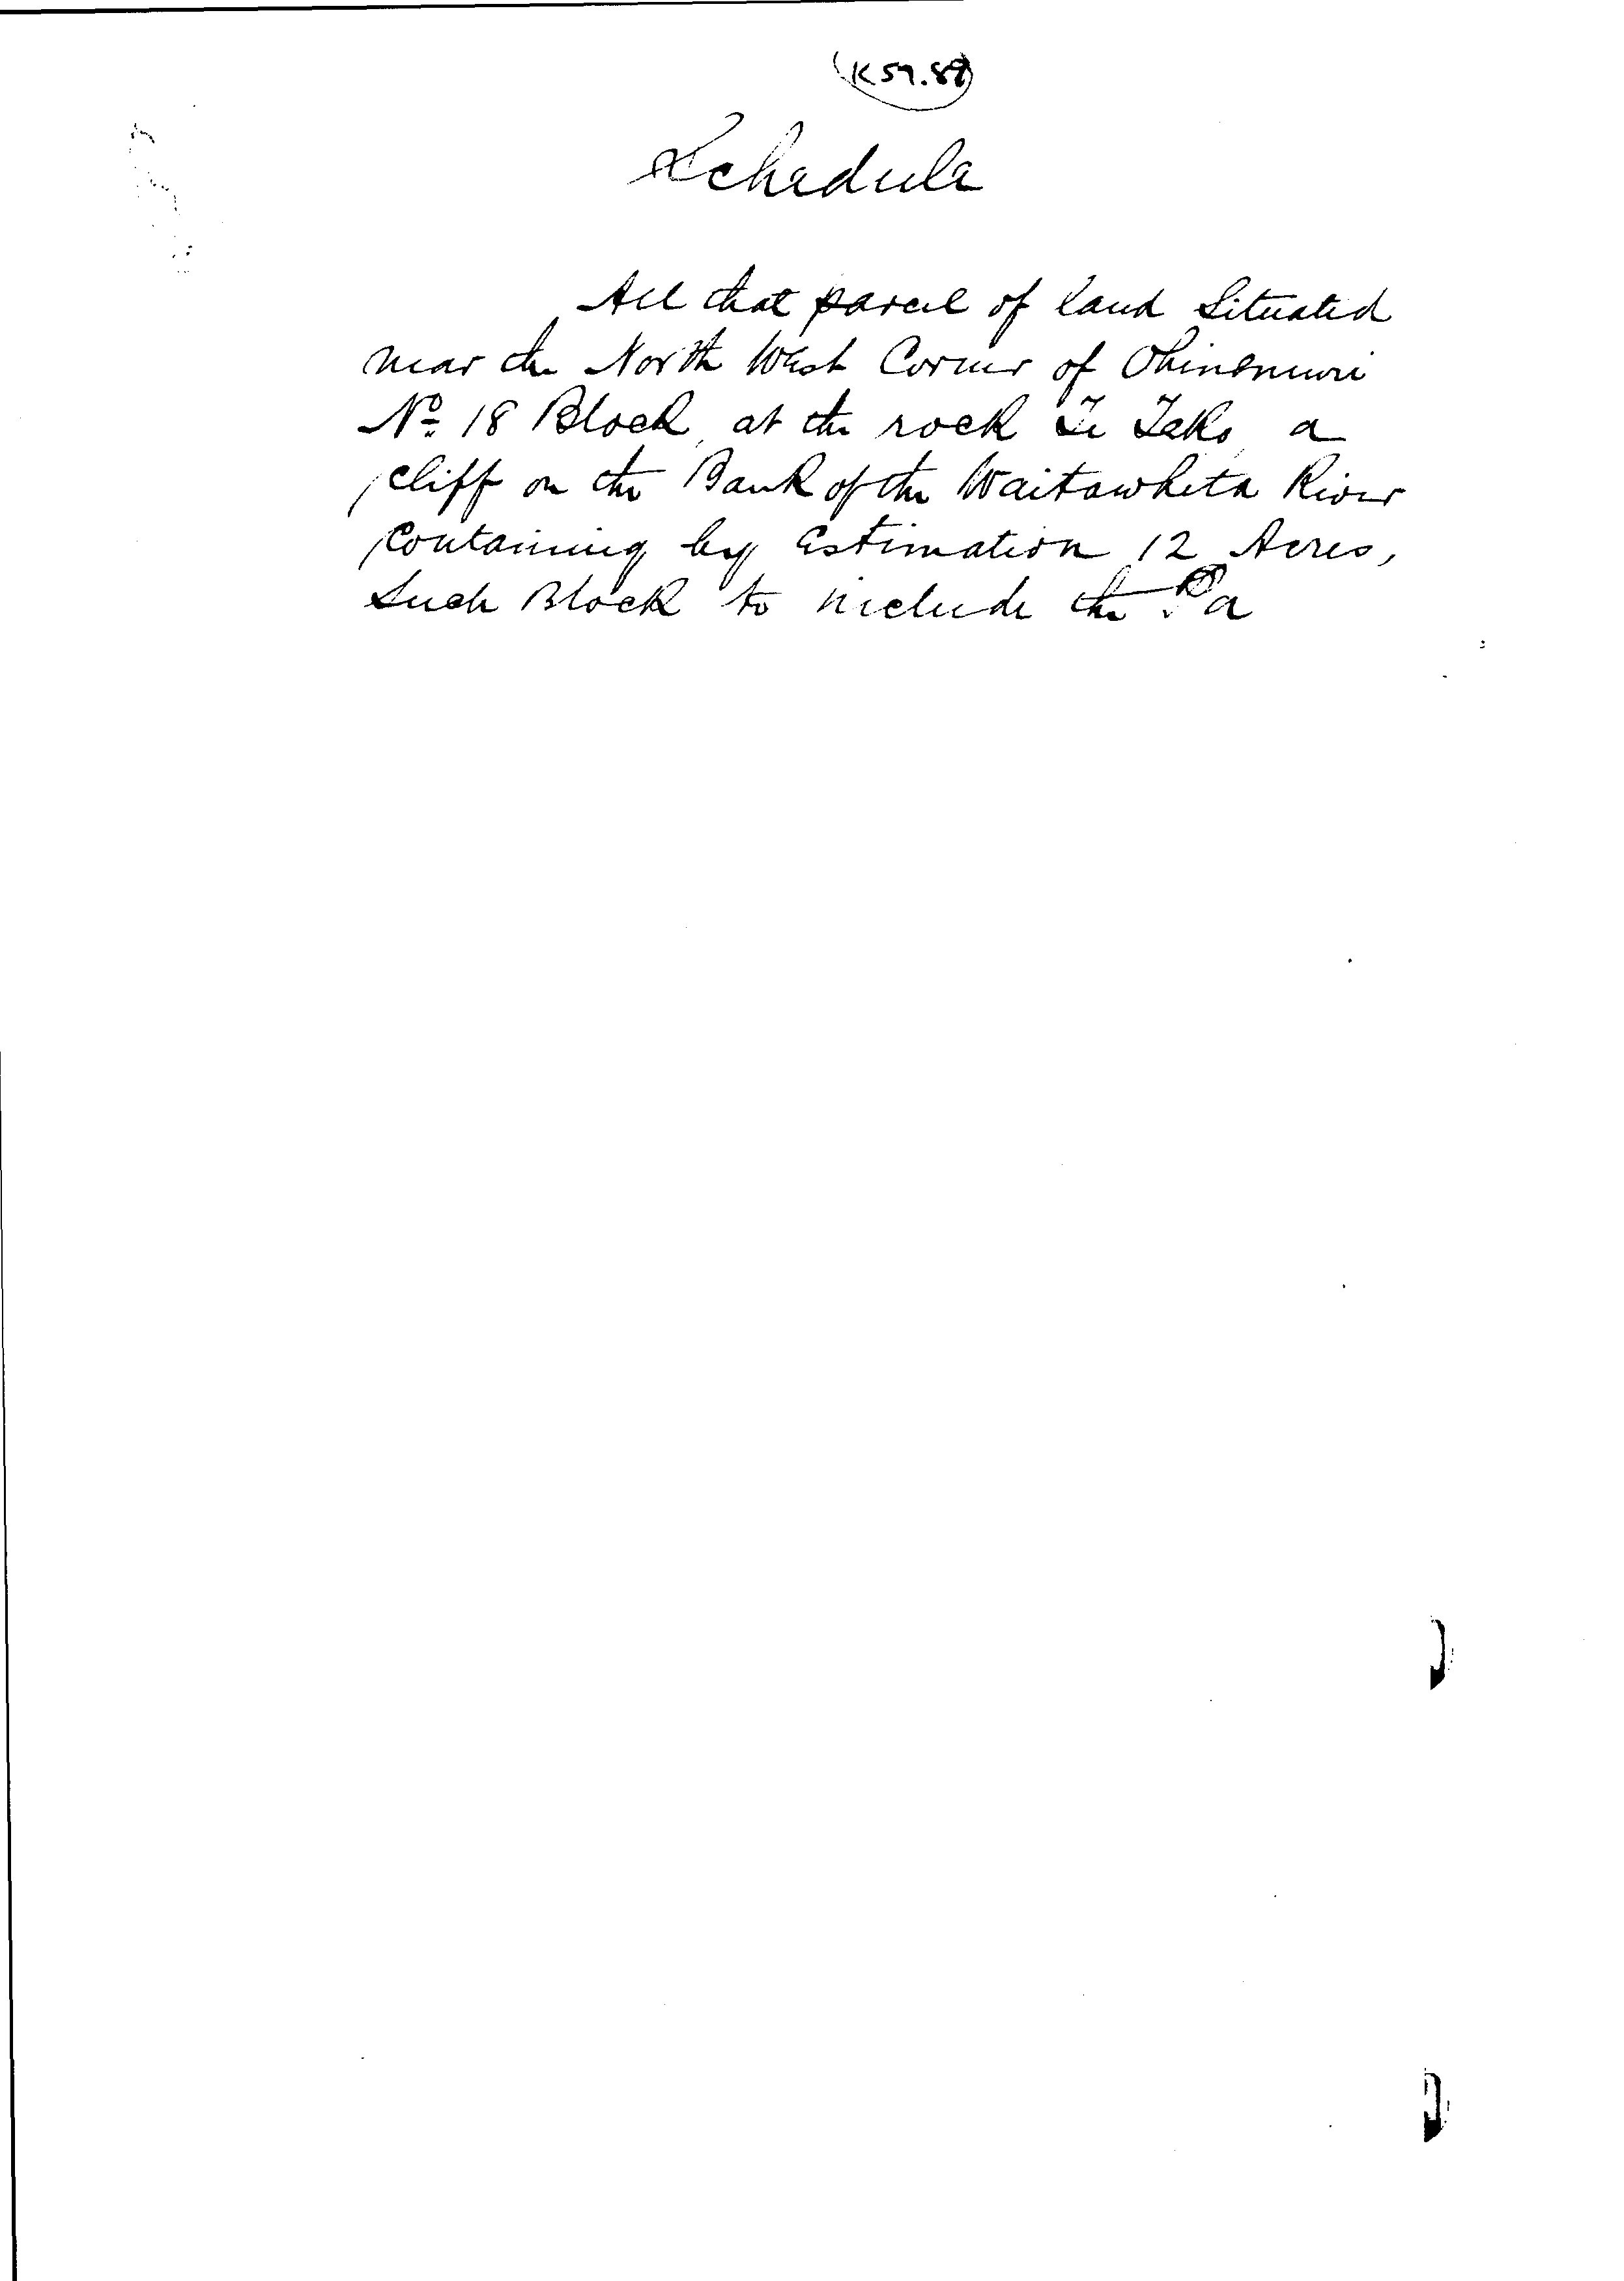 K 57.89
Schedule
All that parcel of land Situated
near the North West Corner of Ohinemuri
No. 18 Block, at the rock Te Teko, a
cliff on the Bank of the Waitawheta River
Containing by Estimation 12 Acres,
Such Block to include the Pa